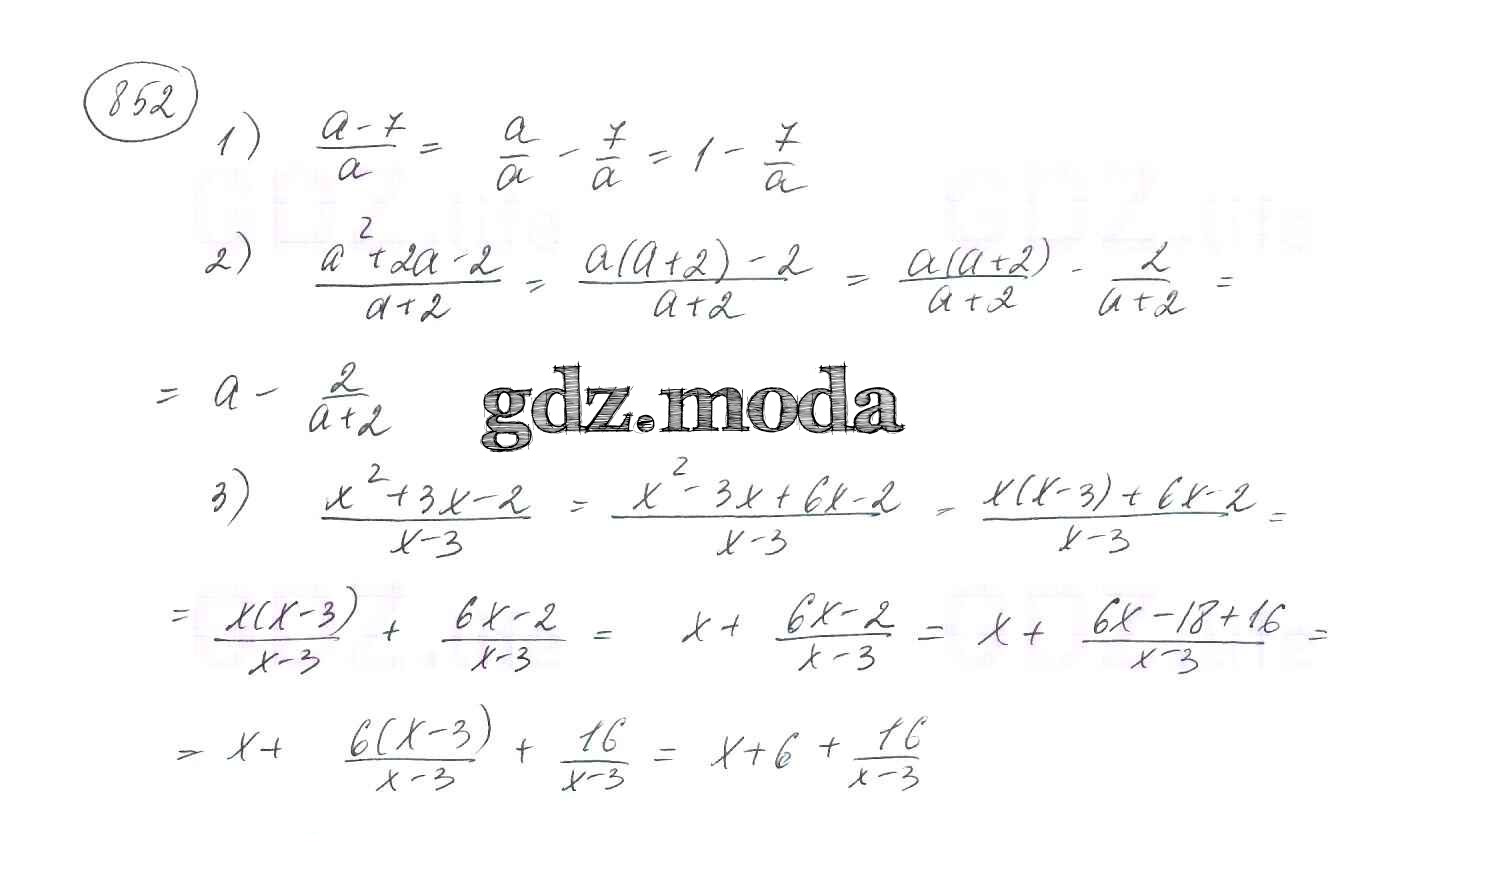 852
1) (a-7)/a = a/a - 7/a = 1 - 7/a
2) (a²+2a-2)/(a+2) = (a(a+2)-2)/(a+2) = a(a+2)/(a+2) - 2/(a+2) =
= a - 2/(a+2)
gdz.moda
3) (x²+3x-2)/(x-3) = (x²-3x+6x-2)/(x-3) = (x(x-3)+6x-2)/(x-3) =
= x(x-3)/(x-3) + (6x-2)/(x-3) = x + (6x-2)/(x-3) = x + (6x-18+16)/(x-3) =
= x + 6(x-3)/(x-3) + 16/(x-3) = x+6 + 16/(x-3)
GDZ.life GDZ.life
GDZ.life GDZ.life